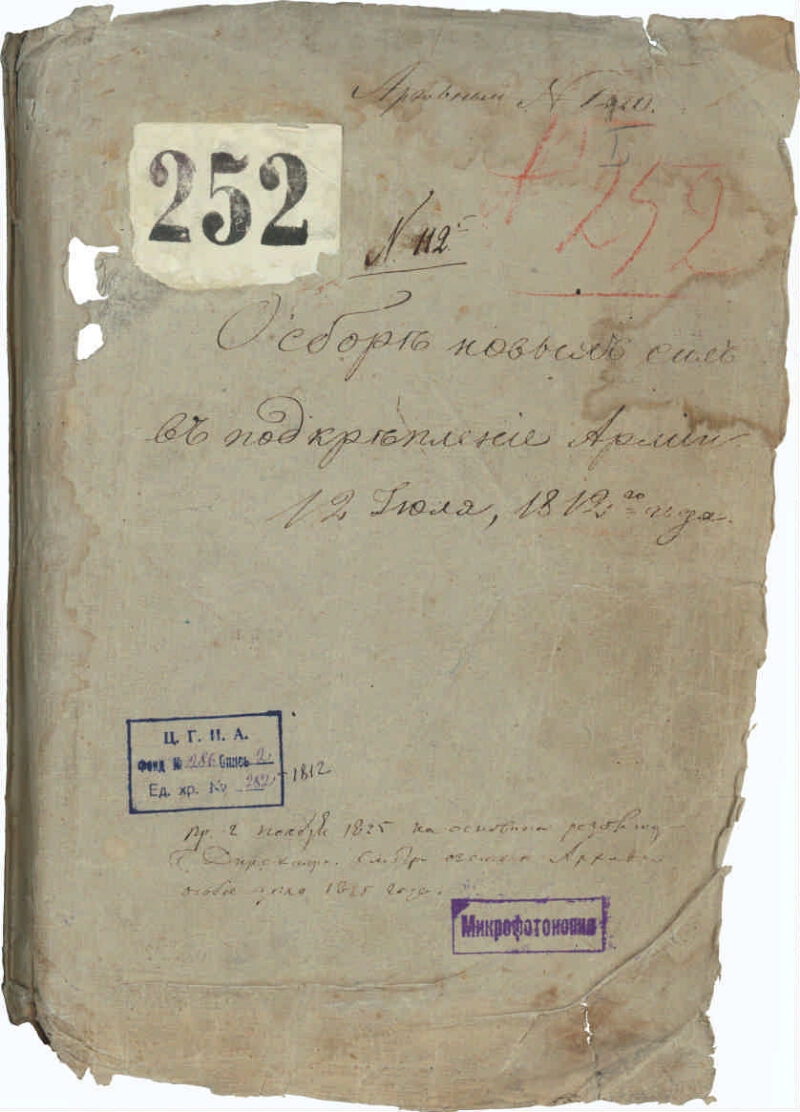 Архивный №
252
I
252
№ 112
О сборѣ новыхъ силъ
въ подкрѣпленіе Арміи
12 Іюля, 1812го года.
Ц. Г. И. А.
Фонд № 286 Опись 2
Ед. хр. № 252 - 1812
1825 на основании
Архива
1825 года.
Микрофотокопия